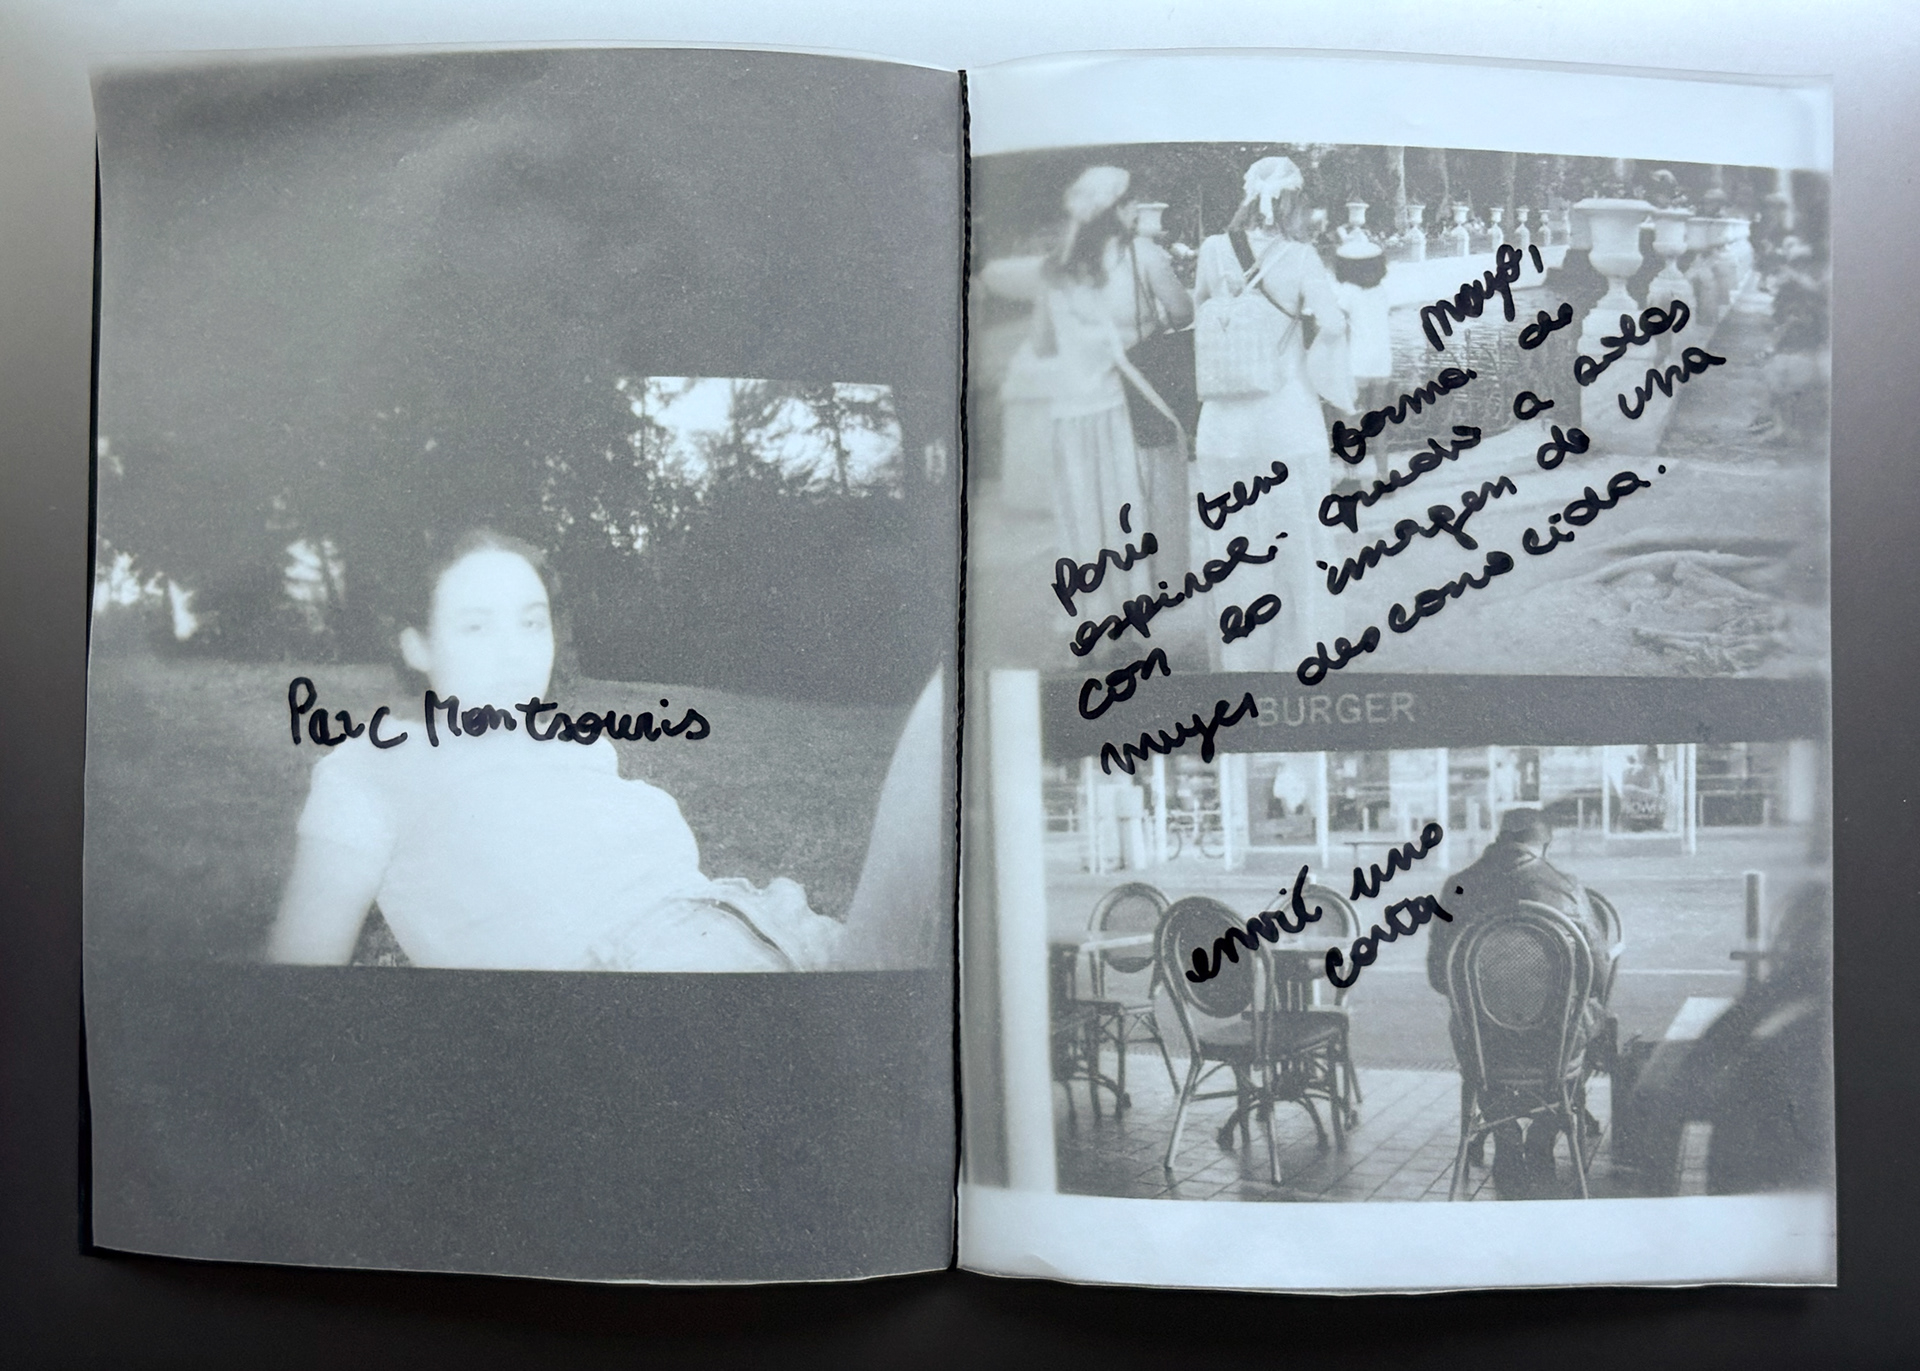 Parc Montsouris
mayo,
París tiene forma de
espiral. quedé a solas
con la imagen de una
mujer desconocida.
BURGER
envié una
carta.